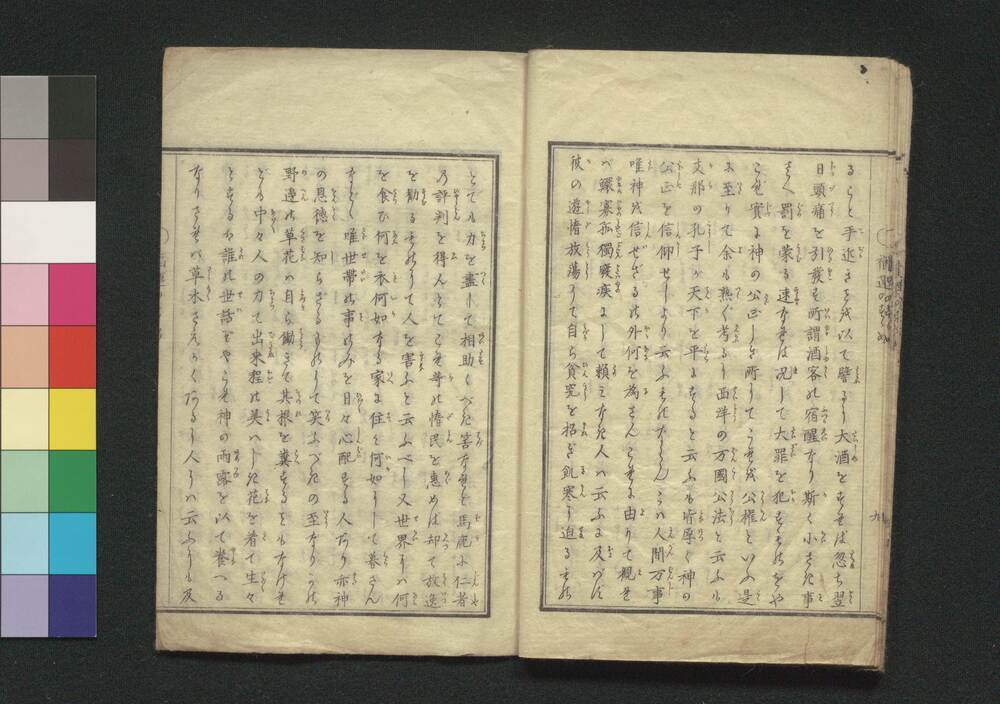 るらく手近きことを以て譬るに大酒をすれば忽ち翌
日頭痛を引發す所謂酒客の宿醒なり斯く小き事
さへ罰を蒙る速なれば况して大罪を犯すものをや
これ實に神の公正しき所にてこれを公權といふ是
に至りて余も熟ぐ考るに西洋の万國公法と云ふも
支那の孔子が天下を平にすると云ふも皆厚く神の
公正を信仰せしより云ふものなりん人間万事
唯神を信ぜざるの外何を為さんこれに由りて観れ
バ鰥寡孤獨癈疾にして頼みなき人ハ云ふに及バず
彼の遊惰放蕩にて自ら貧究を招き飢寒に迫るもの
とても力を盡して相助くべき筈なれど馬鹿に仁者
の評判を得んとてこれ等の惰民を惠めば却て放逸
を勧るにありて人を害ふと云ふべし又世界にハ何
を食ひ何を衣何如なる家に住を何如にして暮さん
などゝ唯世帯の事のみを日々心配する人あり亦神
の恩德を知らざるものにて笑ふべきの至なりかの
野邊の草花ハ自ら働きて其根を糞することもなけれ
どる中々人の力て出来程の美ハしき花を着て生々
とするハ誰の世話ぞやこれ神の雨露を以て養へる
なりされバ草木さへかくあるに人にハ云ふにも及
九